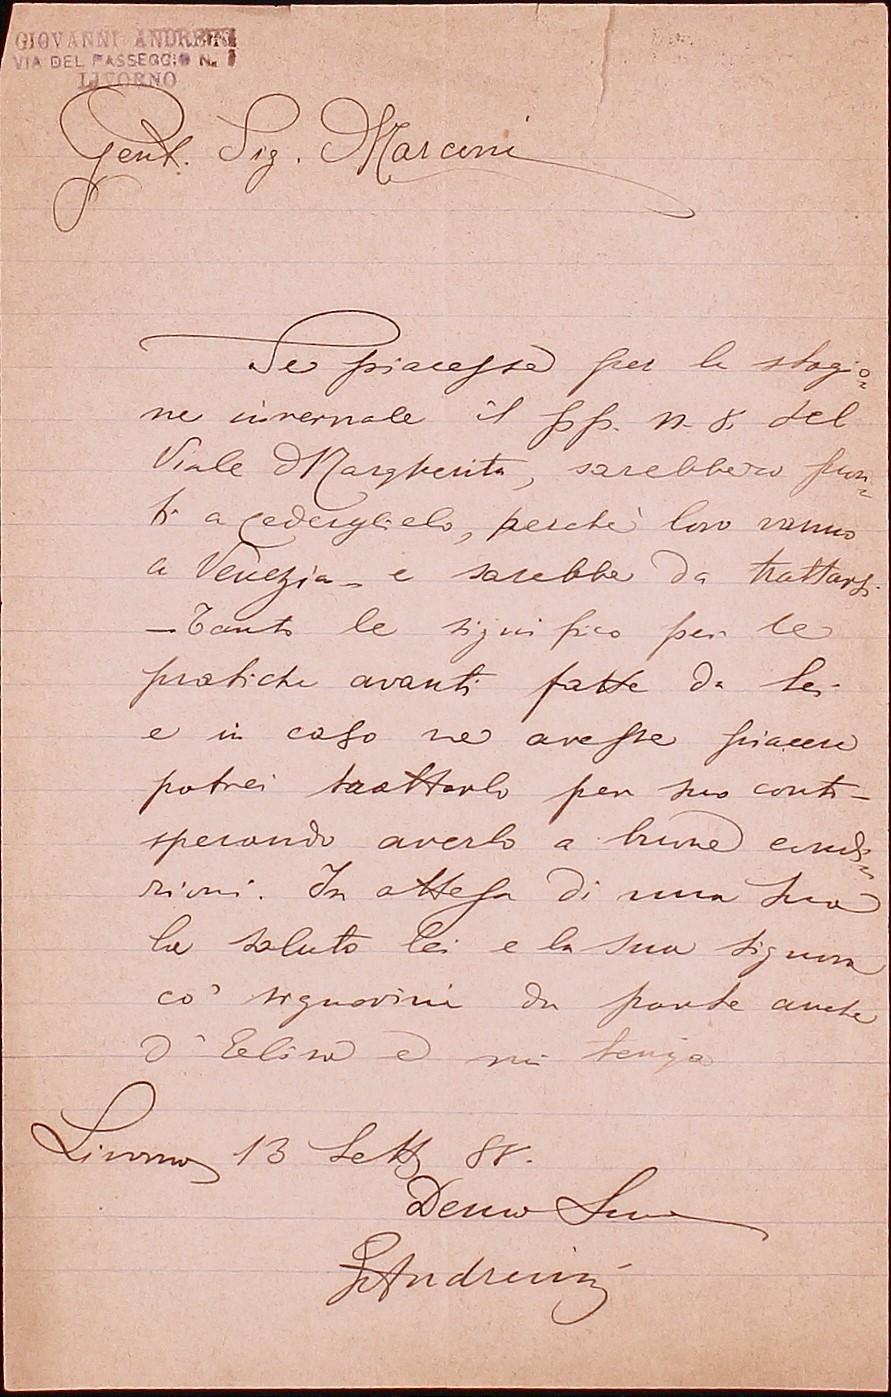 GIOVANNI ANDREINI
VIA DEL PASSEGGIO N. 1
LIVORNO
Gent. Sig. Marconi
Se piacesse per la stagio=
ne invernale il pp. n. 8. del
Viale Margherita, sarebbero pron=
ti a cederglielo, perchè loro vanno
a Venezia_ e sarebbe da trattarsi.
—Tanto le significo per le
pratiche avanti fatte da lei
e in caso ne avesse piacere
potrei trattarlo per suo conto—
sperando averlo a buone condi=
zioni. In attesa di una sua
la saluto lei e la sua signora
co' signorini da parte anche
d' Elisa e mi tenga
Livorno 13 Sett 88.
Devmo Suo
GAndreini